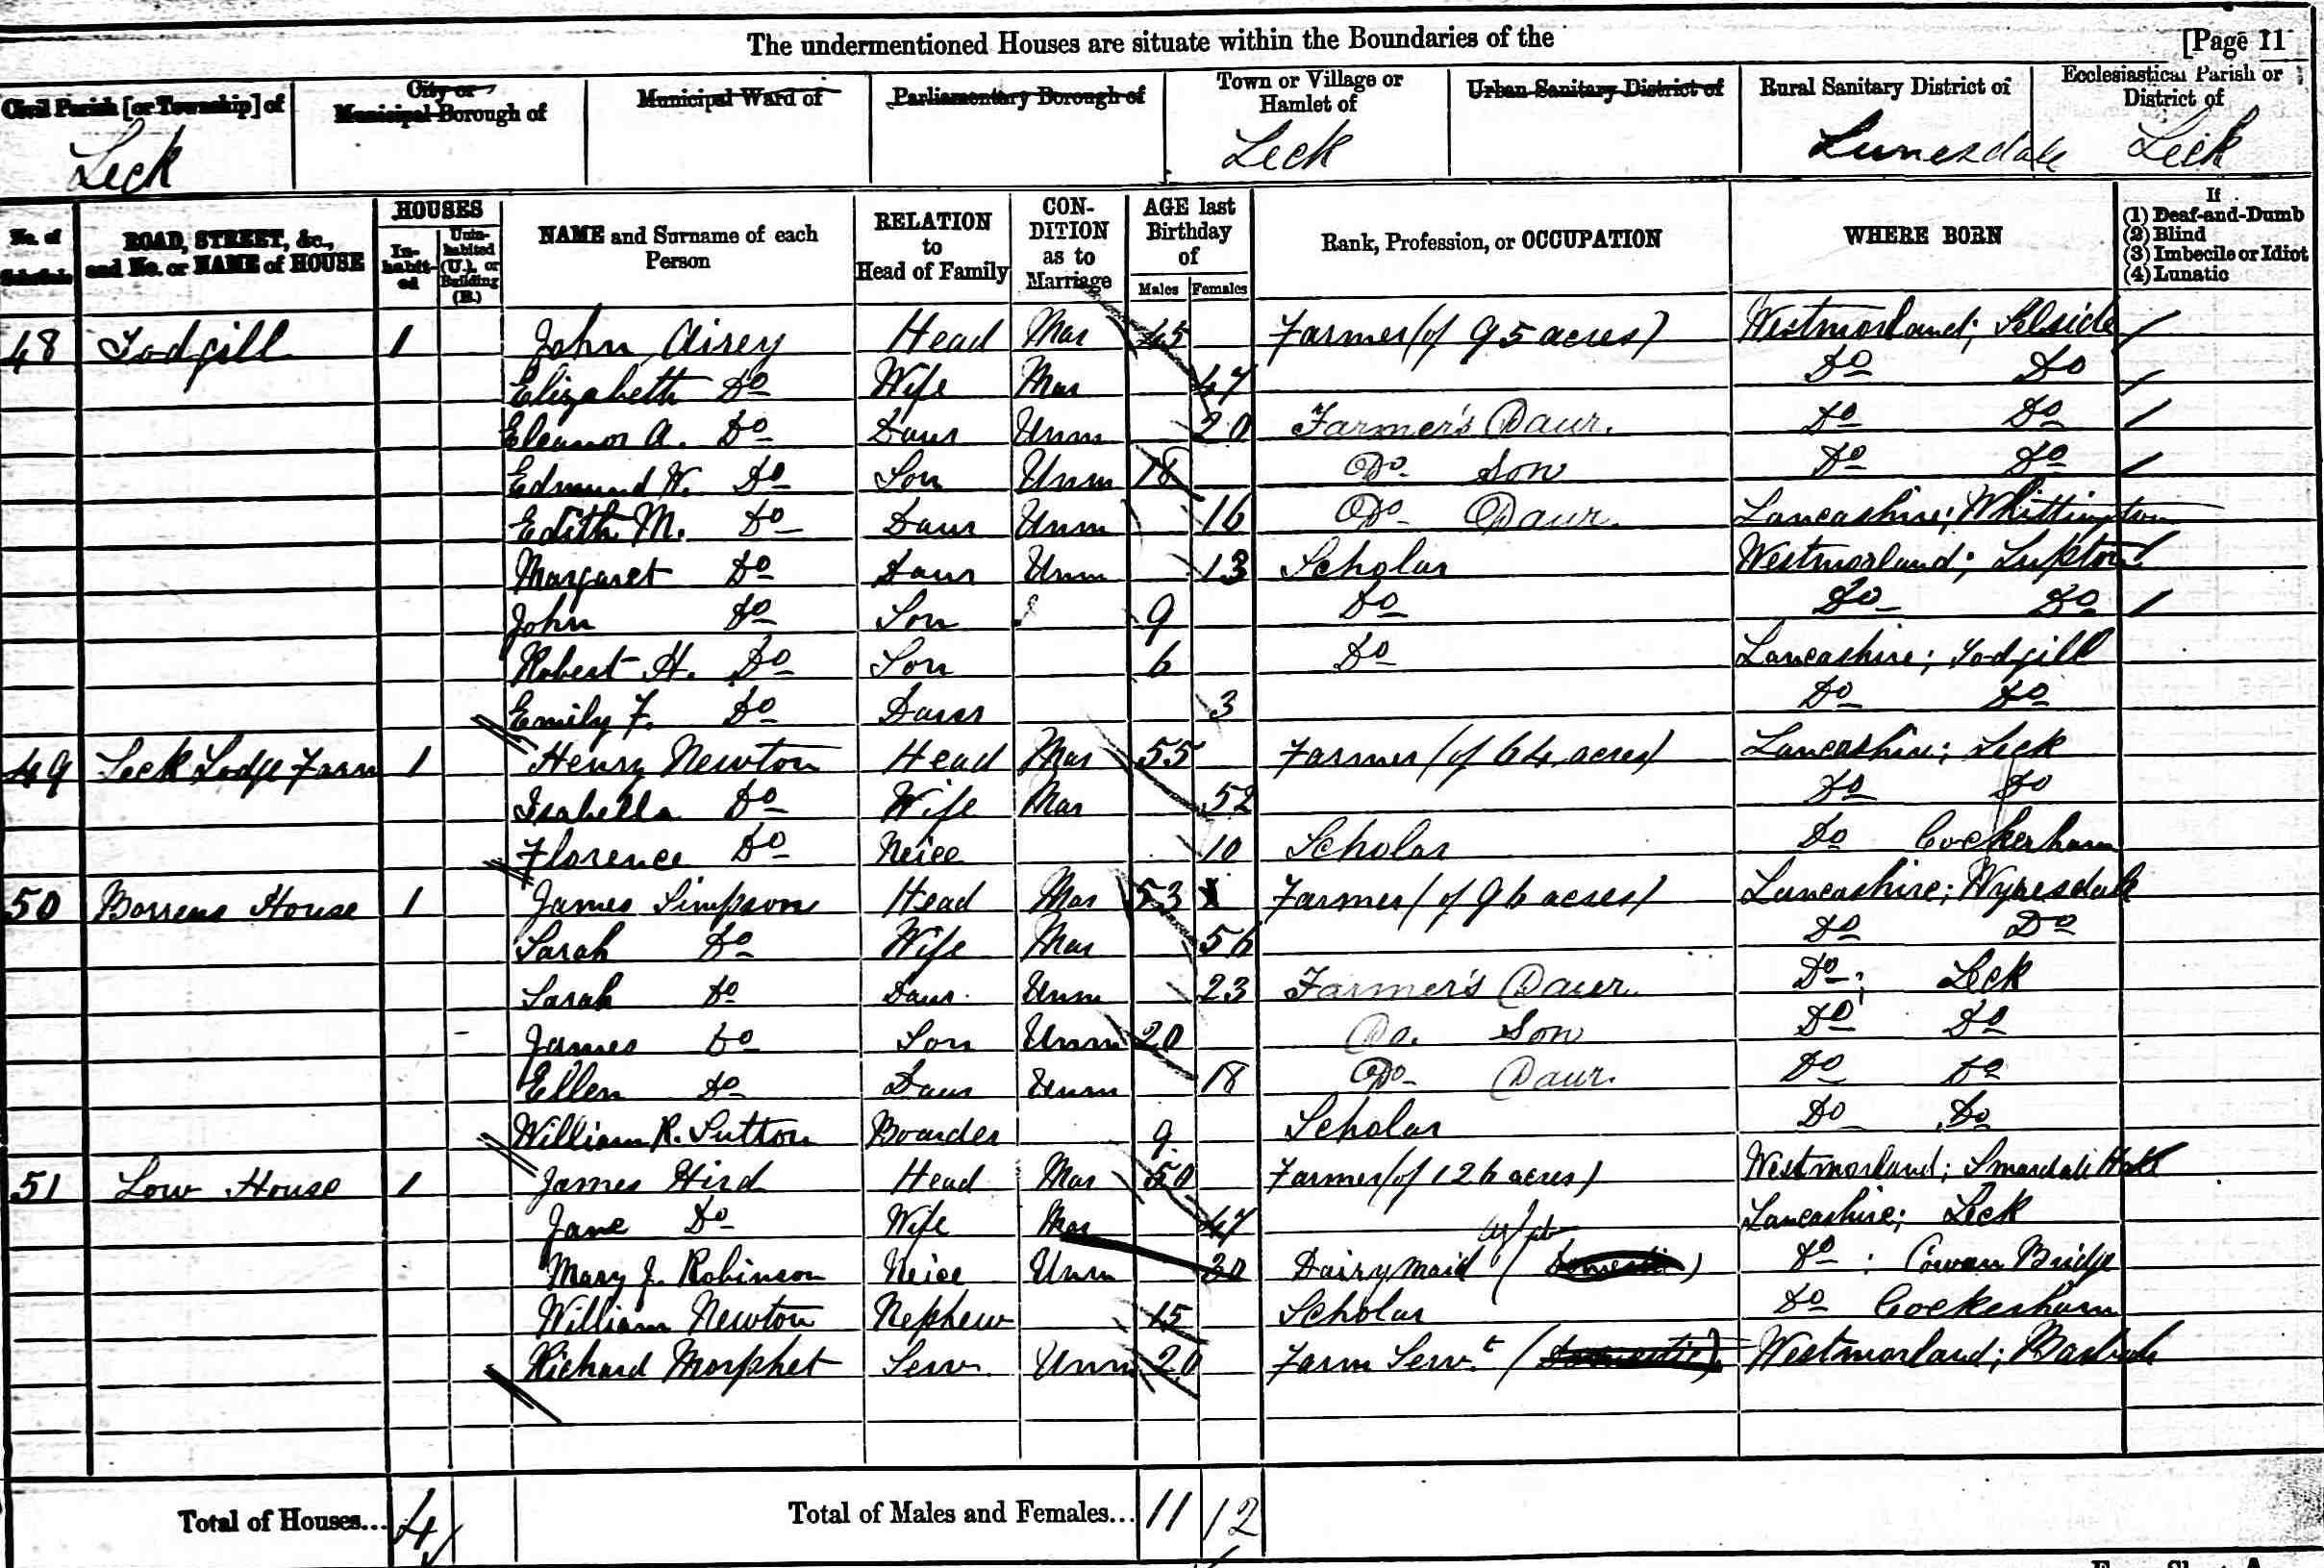 The undermentioned Houses are situate within the Boundaries of the [Page 11
Civil Parish [or Township] of City or Municipal Borough of Municipal Ward of Parliamentary Borough of Town or Village or Hamlet of Urban Sanitary District of Rural Sanitary District of Ecclesiastical Parish or District of
Leck Leck Lunesdale Leck
No. of Schedule ROAD, STREET, &c., and No. or NAME of HOUSE HOUSES Inhabited Uninhabited (U.), or Building (B.) NAME and Surname of each Person RELATION to Head of Family CONDITION as to Marriage AGE last Birthday of Males Females Rank, Profession, or OCCUPATION WHERE BORN If (1) Deaf-and-Dumb (2) Blind (3) Imbecile or Idiot (4) Lunatic
48 Todgill 1 John Airey Head Mar 45 Farmer (of 95 acres) Westmorland; Selside
Elizabeth Do Wife Mar 47 Do Do
Eleanor A. Do Daur Unm 20 Farmer's Daur. Do Do
Edmund W. Do Son Unm 18 Do Son Do Do
Edith M. Do Daur Unm 16 Do Daur. Lancashire; Whittington
Margaret Do Daur Unm 13 Scholar Westmorland; Lupton
John Do Son 9 Do Do Do
Robert H. Do Son 6 Do Lancashire; Todgill
Emily F. Do Daur 3 Do Do
49 Leck Lodge Farm 1 Henry Newton Head Mar 55 Farmer (of 64 acres) Lancashire; Leck
Isabella Do Wife Mar 52 Do Do
Florence Do Neice 10 Scholar Do Cockerham
50 Borrens House 1 James Simpson Head Mar 53 Farmer (of 96 acres) Lancashire; Wyresdale
Sarah Do Wife Mar 56 Do Do
Sarah Do Daur. Unm 23 Farmer's Daur. Do; Leck
James Do Son Unm 20 Do. Son Do Do
Ellen Do Daur Unm 18 Do Daur. Do Do
William R. Sutton Boarder 9 Scholar Do Do
51 Low House 1 James Hird Head Mar 50 Farmer (of 126 acres) Westmorland; Smardale Hall
Jane Do Wife Mar 47 Lancashire; Leck
Mary J. Robinson Neice Unm 20 Dairymaid (Domestic) Do: Cowan Bridge
William Newton Nephew 15 Scholar Do Cockerham
Richard Morphet Serv. Unm 20 Farm Servt (Domestic) Westmorland; Barbick
Total of Houses... 4 Total of Males and Females... 11 12